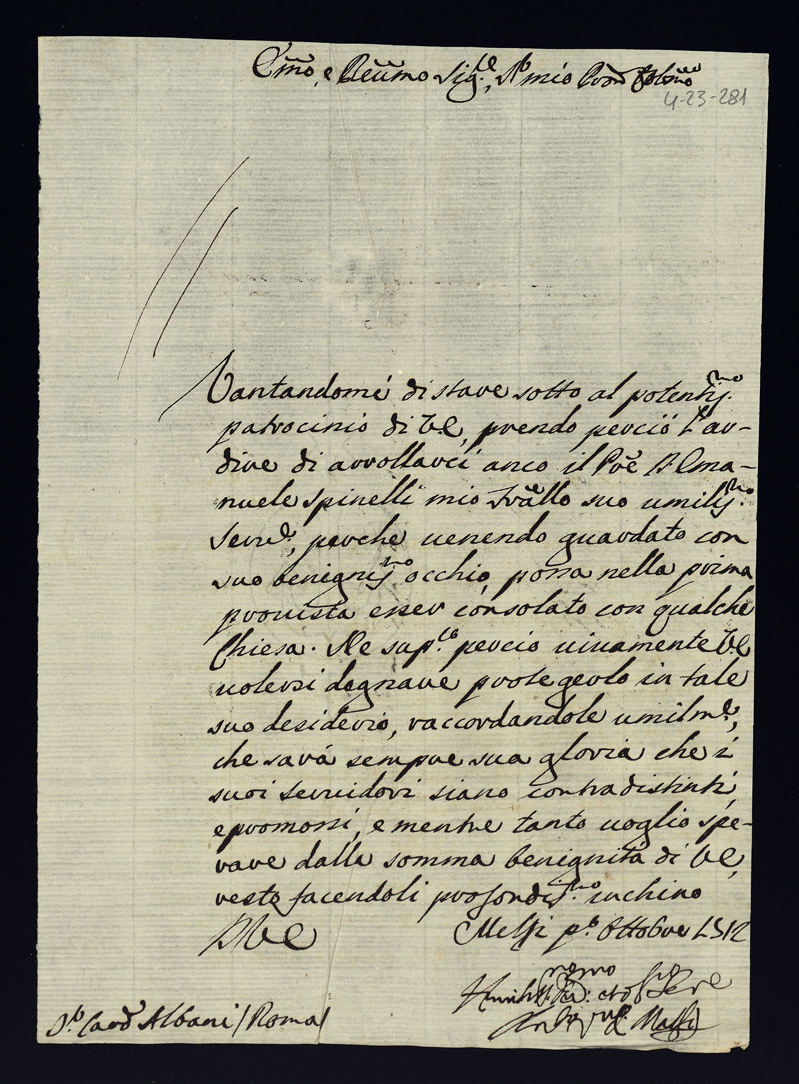 Emo, e Reumo Sig.re, Sr mio Pron Colmo
4-23-281
Vantandomi di stare sotto al potentis.mo
patrocinio di V.E, prendo perciò l'ar-
dire di arrollarci anco il Pre D. Ema-
nuele Spinelli mio Frallo suo umilis.mo
Serv.e, perche uenendo guardato con
suo benignis.mo occhio, possa nella prima
prouista esser consolato con qualche
Chiesa. Ne sup.co perciò uiuamente V.E
uolersi degnare protegerlo in tale
suo desiderio, raccordandole umilm.e,
che sarà sempre sua gloria che i
suoi seruidori siano contradistinti,
e promossi, e mentre tanto uoglio spe-
rare dalla somma benignità di V.E,
resto facendoli profondis.mo inchino
D V E
Melfi p.o Ottobre
Sr Card Albani / Roma /